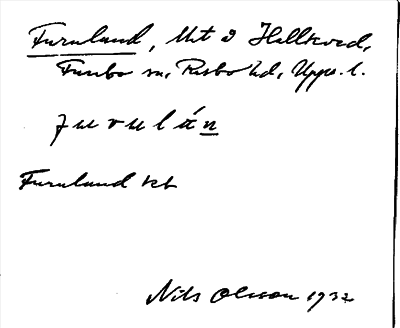 Furuland, Utt å Hällered,
Funbo sn, Rasbo hd, Upps. l.
furulán
Furuland kb
Nils Olsson 1932